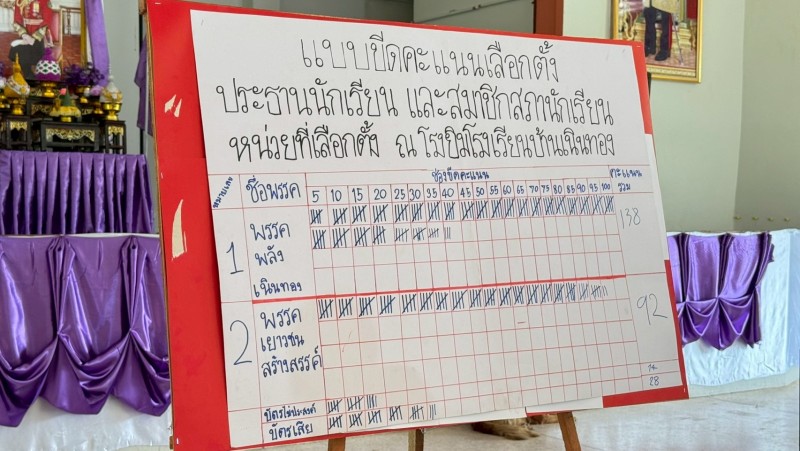 แบบขีดคะแนนเลือกตั้ง
ประธานนักเรียน และสมาชิกสภานักเรียน
หน่วยที่เลือกตั้ง ณ โรงยิมโรงเรียนบ้านเนินทอง
หมายเลข ชื่อพรรค ช่องขีดคะแนน คะแนนรวม
5 10 15 20 25 30 35 40 45 50 55 60 65 70 75 80 85 90 95 100
1 พรรค 138
พลัง
เนินทอง
2 พรรค 92
เยาวชน
สร้างสรรค์
บัตรไม่ประสงค์ 14
บัตรเสีย 28